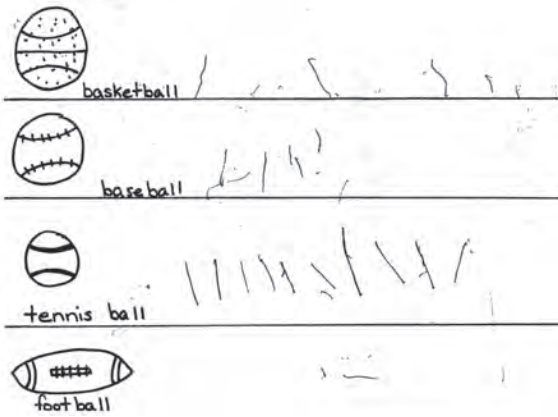 basketball
baseball
tennis ball
football